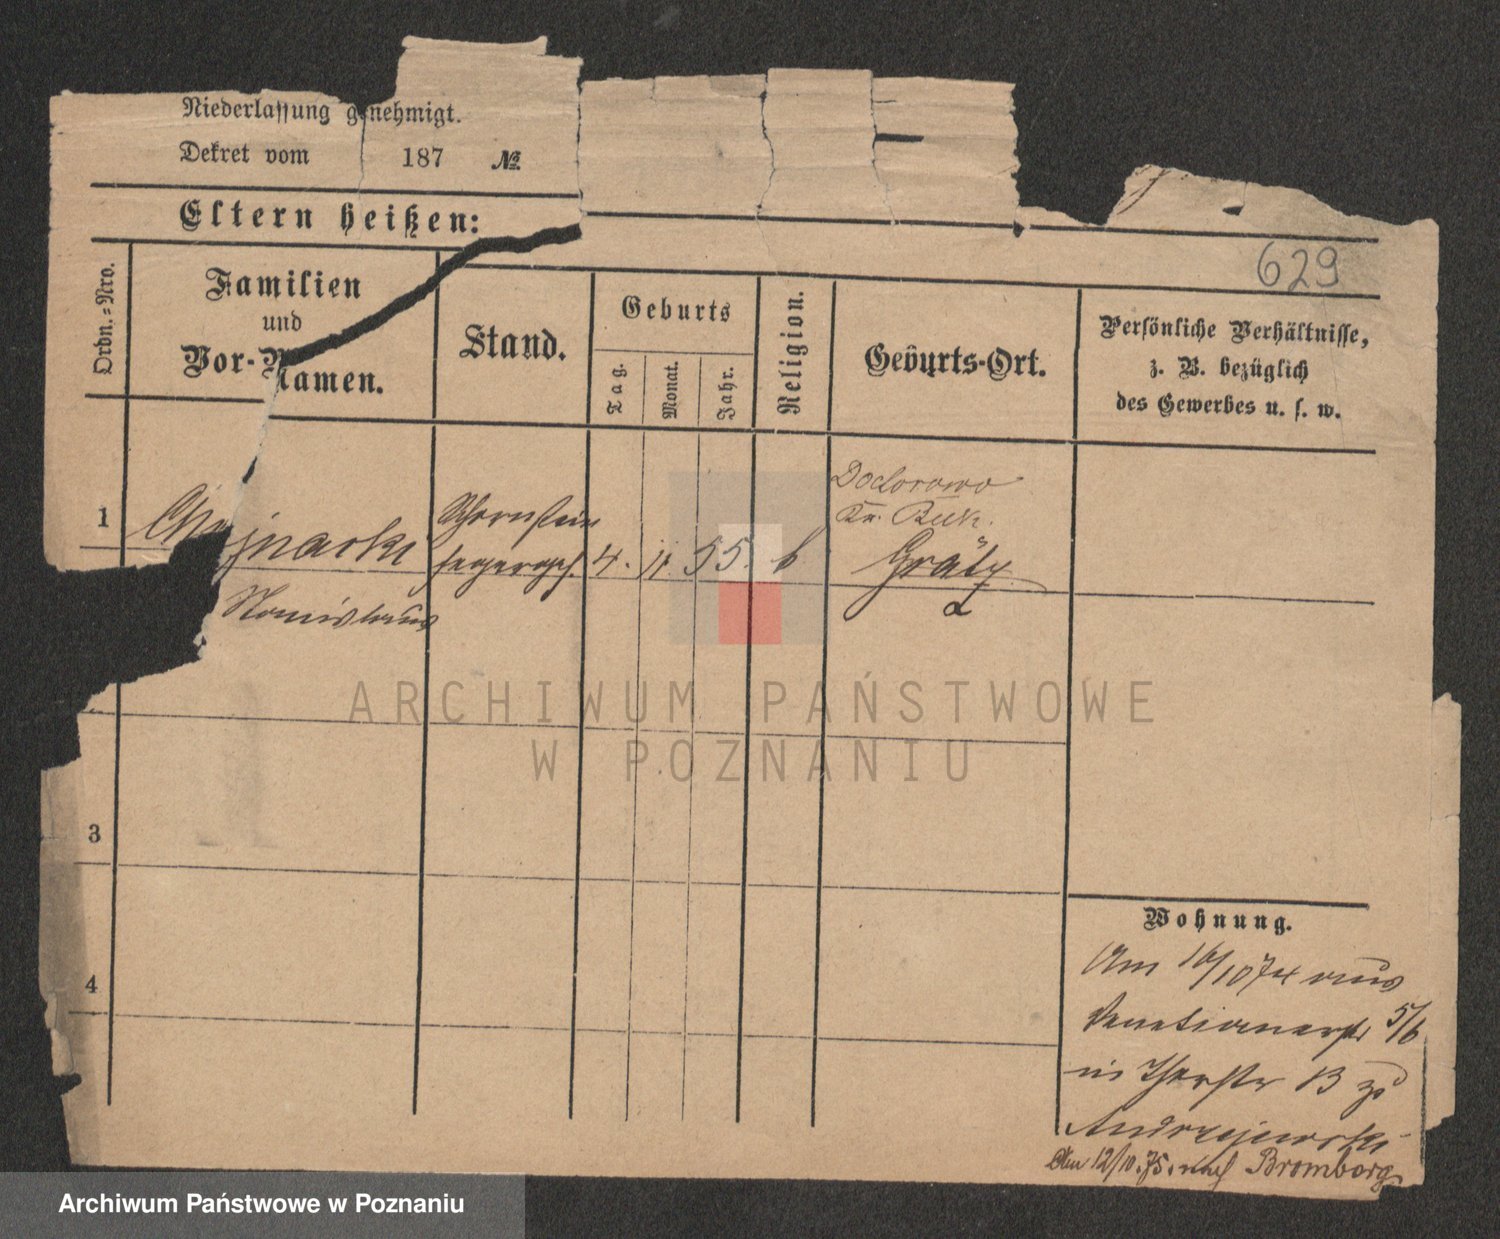 Niederlassung genehmigt.
Dekret vom 187 №
Eltern heißen:
629
Ordn.=Nro.
Familien
und
Vor-Namen.
Stand.
Geburts
Tag.
Monat.
Jahr.
Religion.
Geburts-Ort.
Persönliche Verhältnisse,
z. B. bezüglich
des Gewerbes u. s. w.
Doctorowo
Kr. Buk.
1 Schornstein
fegerges. 4. 11. 55. k Grätz
Stanislaus
3
4
Wohnung.
Am 16/10 74 aus
Venetianerstr 5/6
in Thorstr 13 zu
Andrzejewski
Am 12/10.75. nach Bromberg
ARCHIWUM PAŃSTWOWE
W POZNANIU
Archiwum Państwowe w Poznaniu